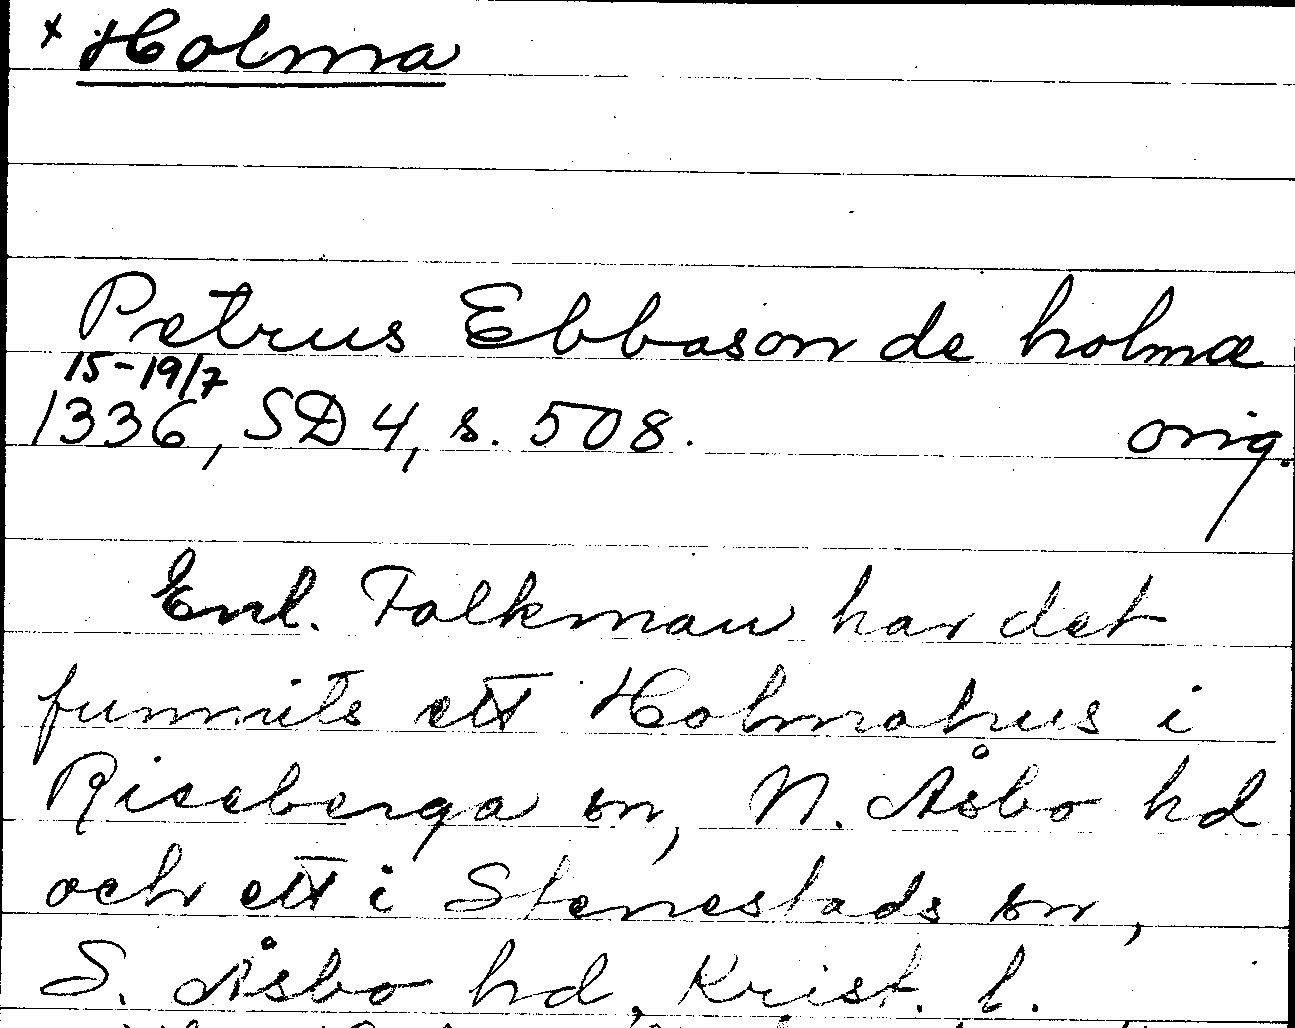 x Holma
Petrus Ebbason de holmæ
15-19/7
1336, SD 4, s. 508. orig.
Enl. Falkman har det
funnits ett Holmahus i
Riseberga sn, N. Åsbo hd
och ett i Stenestads sn,
S. Åsbo hd, Krist. l.